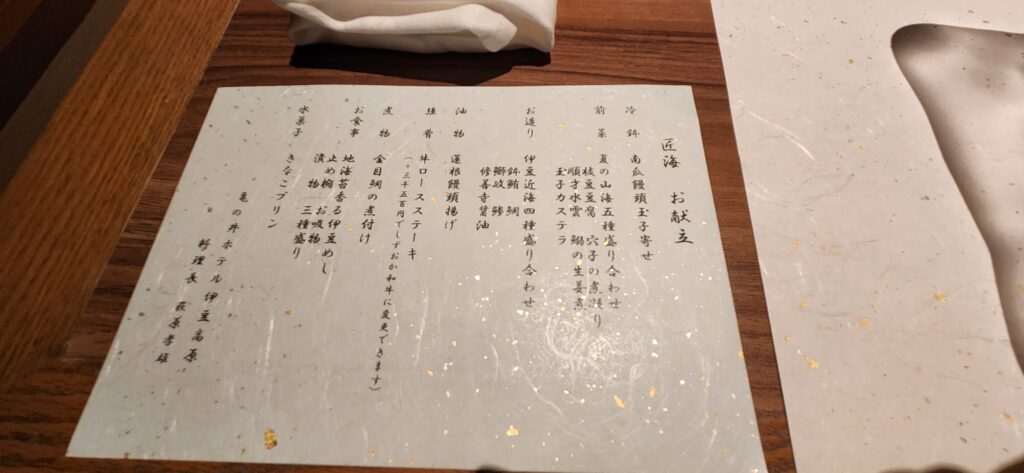 匠海 お献立
冷鉢 南瓜饅頭玉子寄せ
前菜 夏の山海五種盛り合わせ
枝豆豆腐 穴子の煮凝り
順才水雲 鰯の生姜煮
玉子カステラ
お造り 伊豆近海四種盛り合わせ
鉢鮪 鯛
鰤政 鯵
修善寺醤油
油物 蓮根饅頭揚げ
強肴 牛ロースステーキ
(+三千五百円でしずおか和牛に変更できます)
煮物 金目鯛の煮付け
お食事 地海苔香る伊豆めし
止め椀 お吸物
漬物 三種盛り
水菓子 きなこプリン
亀の井ホテル伊豆高原
料理長 萩原孝雄